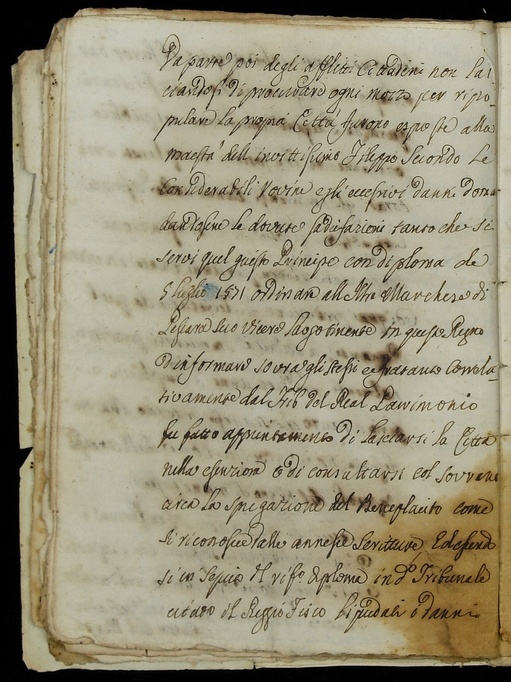 Da parte poi degli afflitti Cittadini non las-
ciandosi di procurare ogni mezzo per ripo-
pulare la propria Città furono esposte alla
maestà dell'invittissimo Filippo Secondo le
considerabili rovine e gli eccessivi danni doman-
dandosene le dovute sodisfazioni tanto che si
servì quel giusto Principe con diploma de
5 luglio 1571 ordinare all'Ill.re Marchese di
Pescara suo vicere luogotinente in questo Regno
d'informare sovra gli stessi e fratanto correla-
tivamente dal Trib. del Real Patrimonio
fu fatto appuntamento di lasciarsi la Città
nella esenzione e di consultarsi col sovrano
circa la spiegazione del Beneplacito come
si riconosce dalle annesse scritture
si in seguio il rif.o diploma in d.o Tribunale
citato il Reggio Fisco li danni